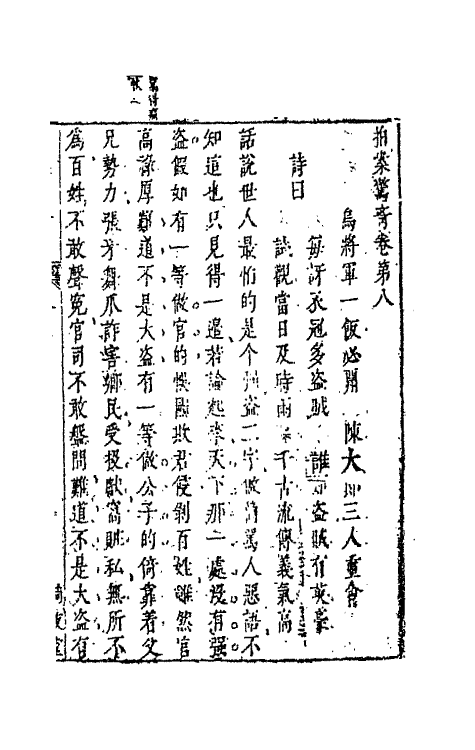 拍案驚奇卷第八
烏將軍一飯必酬　陳大郎三人重會
詩曰
每訝衣冠多盜賊　誰知盜賊有英豪
試觀當日及時雨　千古流傳義氣高
話說世人最怕的是个強盜二字做個罵人惡語不
知這也只見得一邊若論起來天下那一處沒有強
盜假如有一等做官的悞國欺君侵剝百姓雖然官
高祿厚難道不是大盜有一等做公子的倚靠着父
兄勢力張牙舞爪詐害鄉民受投獻窩贓私無所不
為百姓不敢聲冤官司不敢盤問難道不是大盜有